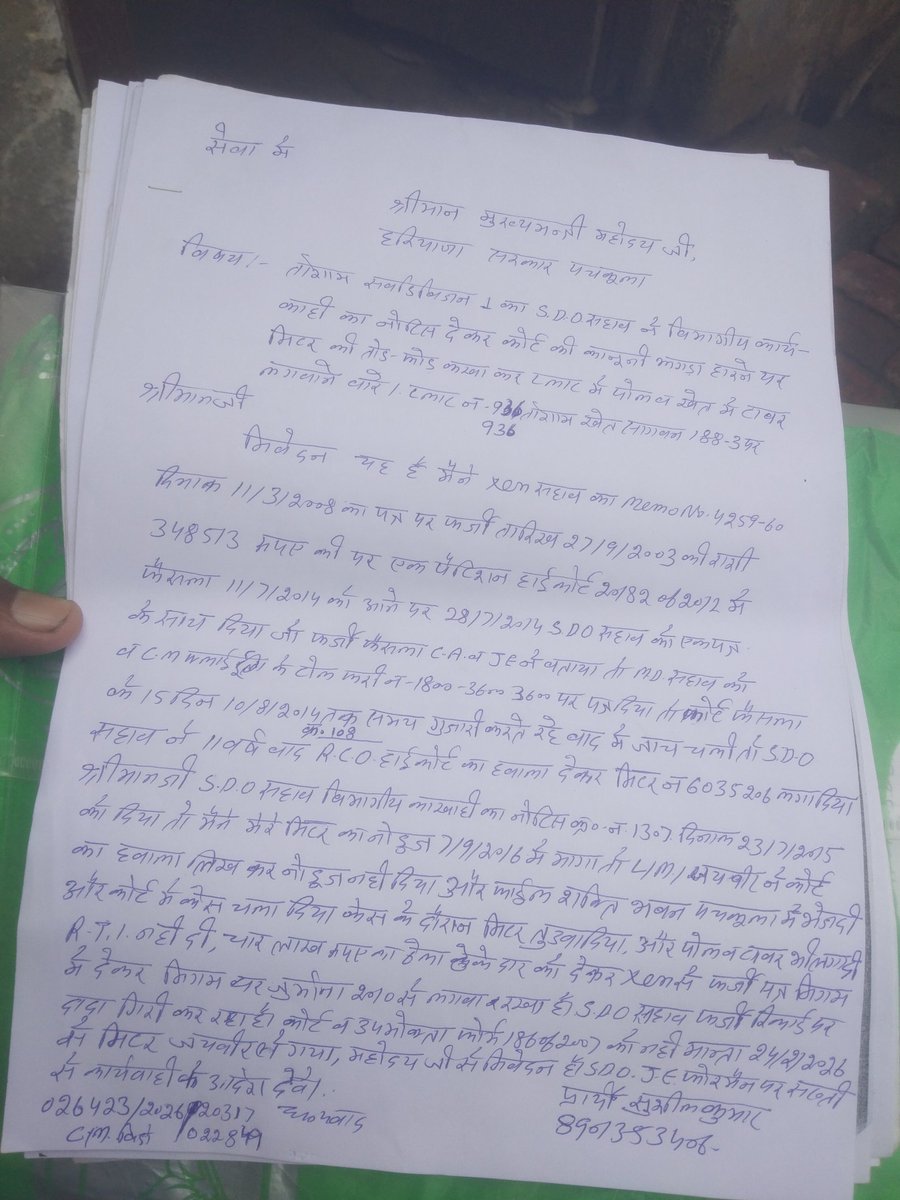 सेवा में
श्रीमान मुख्यमन्त्री महोदय जी,
हरियाणा सरकार पंचकुला
विषय:- तोशाम सबडिविजन 1 का S.D.O सहाब ने विभागीय कार्य-
वाही का नोटिस देकर कोर्ट की कानूनी झगड़ा हारने पर
मिटर की तोड-फोड करवा कर प्लाट में पोल व खेत में टावर
लगवाने बारे। प्लाट न.-936 तोशाम खेत सागवान 188-3 पर
936
श्रीमानजी
निवेदन यह है मैंने Xen सहाब का memo No. 4259-60
दिनांक 11/3/2008 का पत्र पर फर्जी तारिख 27/9/2003 की राशी
348513 रुपए की पर एक पैटिशन हाईकोर्ट 20182 of 2012 में
फैसला 11/7/2014 को आने पर 28/7/2014 S.D.O सहाब को एक पत्र
के साथ दिया जो फर्जी फैसला C.A. व J.E ने बताया तो M.D. सहाब को
व C.M के टोल फ्री न-1800-3600 3600 पर पत्र दिया तो कोर्ट फैसला
के 15 दिन 10/8/2014 तक समय गुजारी करते रहे बाद में जांच चली तो S.D.O
क्र. 108
सहाब ने 11 वर्ष बाद R.C.O. हाईकोर्ट का हवाला देकर मिटर न 6035206 लगा दिया
श्रीमानजी S.D.O सहाब विभागीय का नोटिस क्र० न. 1307 दिनांक 23/7/2015
को दिया तो मैंने मेरे मिटर का नो डूज 7/9/2016 में मांगा तो L/M जयवीर ने कोर्ट
का हवाला लिख कर नो डूज नही दिया और फाईल शक्ति भवन पंचकुला में भेजदी
और कोर्ट में केस चला दिया केस के दौरान मिटर तुडवा दिया, और पोल व टावर भी लगादी
R.T.I. नही दी, चार लाख रुपए का ठेका ठेकेदार को देकर Xen से फर्जी पत्र निगम
में देकर निगम पर जुर्माना 2010 से लगवा रखा है। S.D.O सहाब फर्जी रिकार्ड पर
दादा गिरी कर रहा है। कोर्ट व उपभोक्ता फोर्म 186 of 2007 को नही मानता 24/2/2026
को मिटर जयवीर ले गया, महोदय जी से निवेदन है S.D.O. J.E फोरमैन पर सख्ती
से कार्यवाही के आदेश देवें।
धन्यवाद
प्रार्थी सुशील कुमार
8901353406
026423/2026/20317
C/M. विंडो /022849